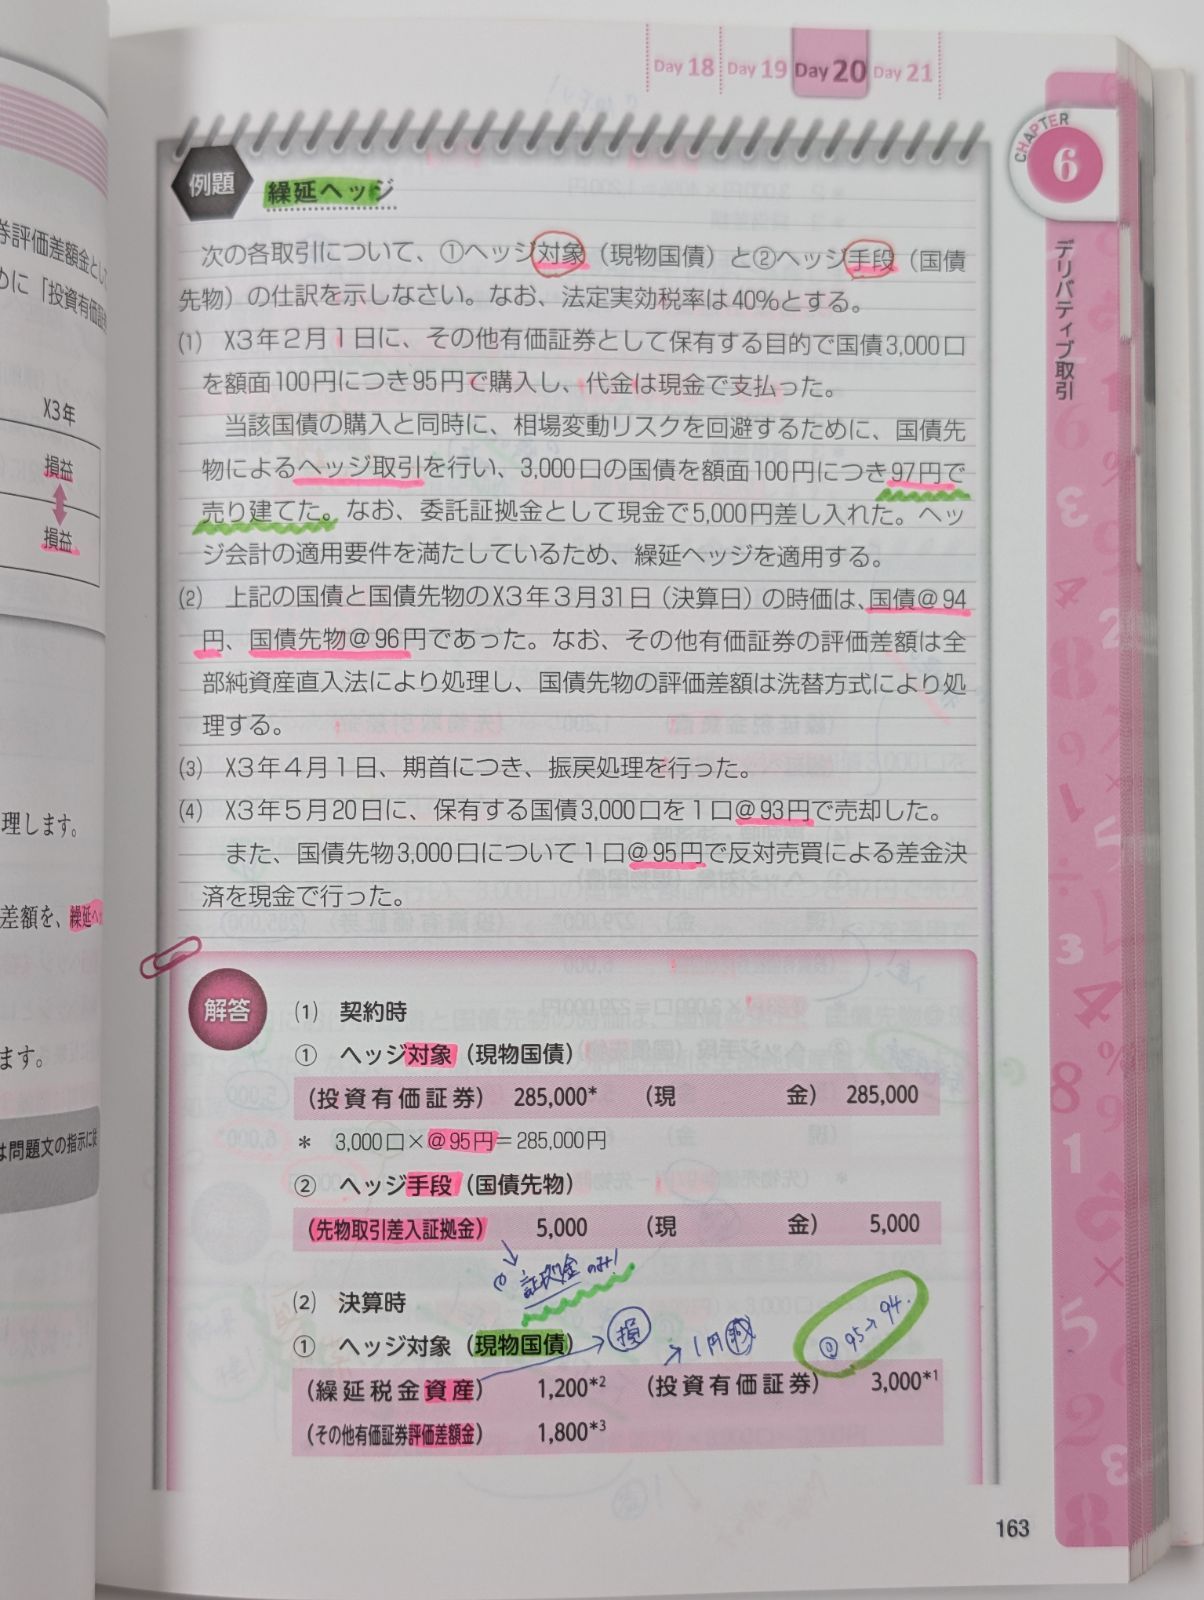 Day 18 Day 19 Day 20 Day 21
CHAPTER
6
デリバティブ取引
券評価差額金とし
めに「投資有価証
X3年
損益
損益
理します。
差額を、繰延ヘ
ます。
は問題文の指示に従
例題 繰延ヘッジ
次の各取引について、①ヘッジ対象(現物国債)と②ヘッジ手段(国債
先物)の仕訳を示しなさい。なお、法定実効税率は40%とする。
(1) X3年2月1日に、その他有価証券として保有する目的で国債3,000口
を額面100円につき95円で購入し、代金は現金で支払った。
当該国債の購入と同時に、相場変動リスクを回避するために、国債先
物によるヘッジ取引を行い、3,000口の国債を額面100円につき97円で
売り建てた。なお、委託証拠金として現金で5,000円差し入れた。ヘッ
ジ会計の適用要件を満たしているため、繰延ヘッジを適用する。
(2) 上記の国債と国債先物のX3年3月31日(決算日)の時価は、国債@94
円、国債先物@96円であった。なお、その他有価証券の評価差額は全
部純資産直入法により処理し、国債先物の評価差額は洗替方式により処
理する。
(3) X3年4月1日、期首につき、振戻処理を行った。
(4) X3年5月20日に、保有する国債3,000口を1口@93円で売却した。
また、国債先物3,000口について1口@95円で反対売買による差金決
済を現金で行った。
解答 (1) 契約時
① ヘッジ対象(現物国債)
(投資有価証券) 285,000* (現 金) 285,000
* 3,000口×@95円=285,000円
② ヘッジ手段(国債先物)
(先物取引差入証拠金) 5,000 (現 金) 5,000
証拠金のみ!
(2) 決算時
① ヘッジ対象(現物国債) 損 1円減 @95→94.
(繰延税金資産) 1,200*2 (投資有価証券) 3,000*1
(その他有価証券評価差額金) 1,800*3
163